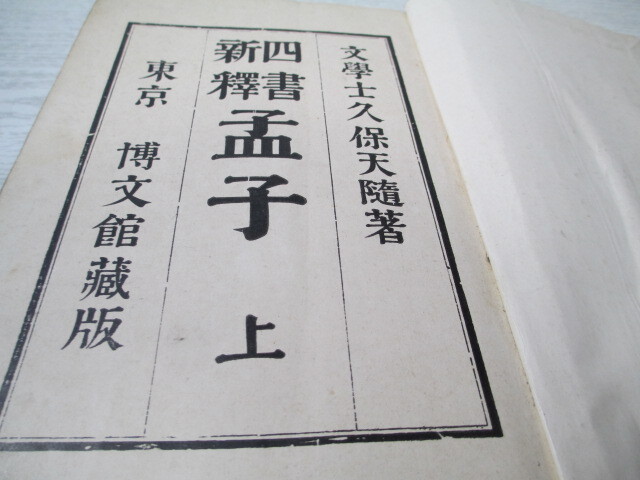 文學士久保天隨著
四書
新釋
孟子 上
東京 博文館藏版